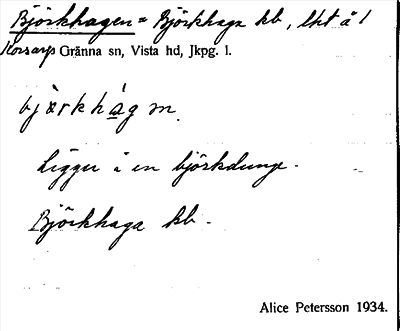 Björkhagen = Björkhaga hb, lht å 1
Korsarp Gränna sn, Vista hd, Jkpg. l.
bjœrkhàgm.
Ligger i en björkdunge.
Björkhaga hb.
Alice Petersson 1934.